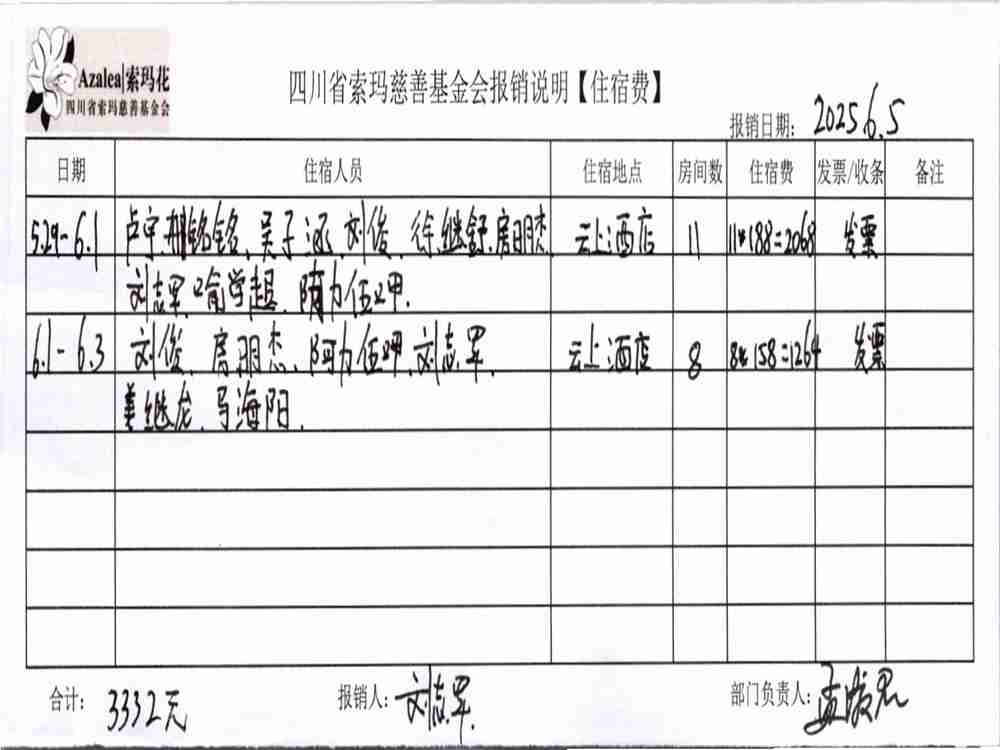 Azalea|索玛花
四川省索玛慈善基金会
四川省索玛慈善基金会报销说明【住宿费】
报销日期: 2025 6.5
日期 住宿人员 住宿地点 房间数 住宿费 发票/收条 备注
5.29-6.1 卢宇.邢铭铭、吴子涵、刘俊、徐继舒.房朋杰 云上酒店 11 11*188=2068 发票
刘志军.喻学超、阿力伍呷.
6.1-6.3 刘俊、房朋杰、阿力伍呷.刘志军、 云上酒店 8 8*158=1264 发票
姜继龙、马海阳.
合计: 3332元 报销人: 刘志军. 部门负责人: